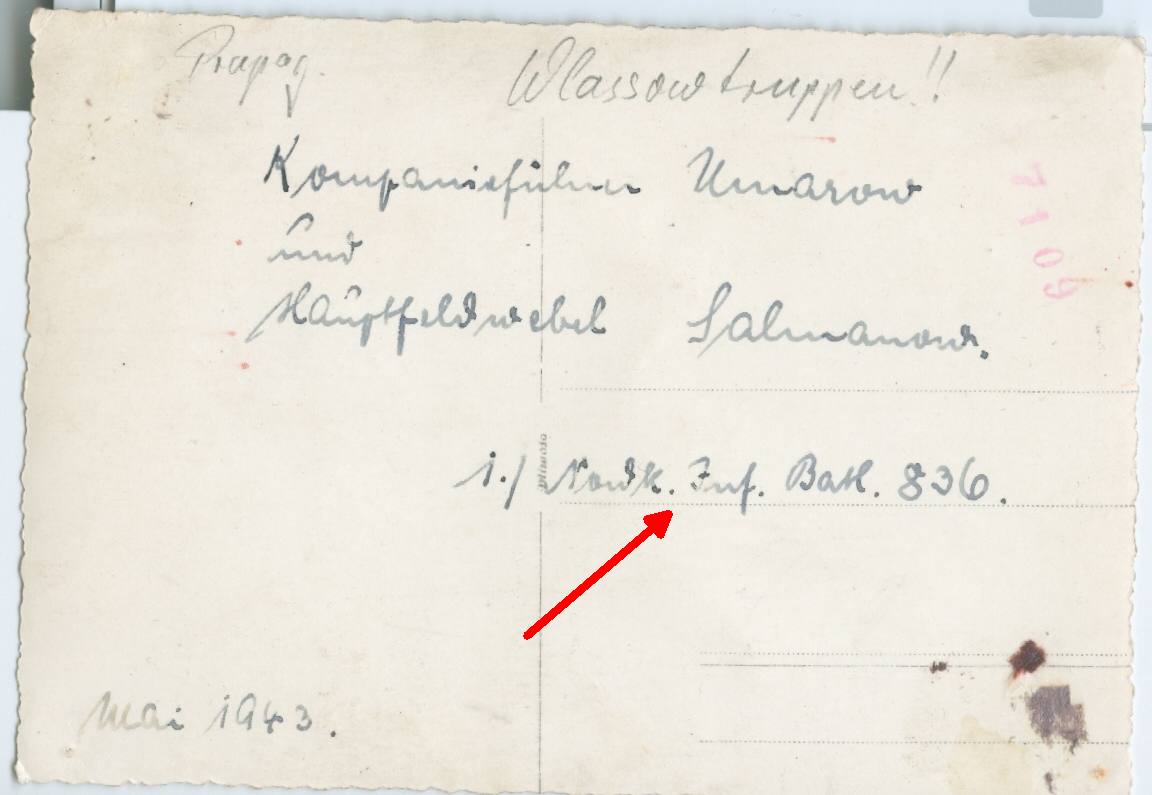 Propag. Wlassowtruppen!!
Kompanieführer Umarow
und
Hauptfeldwebel Salmanow.
1./ Nordk. Inf. Batl. 836.
Mai 1943.
7109